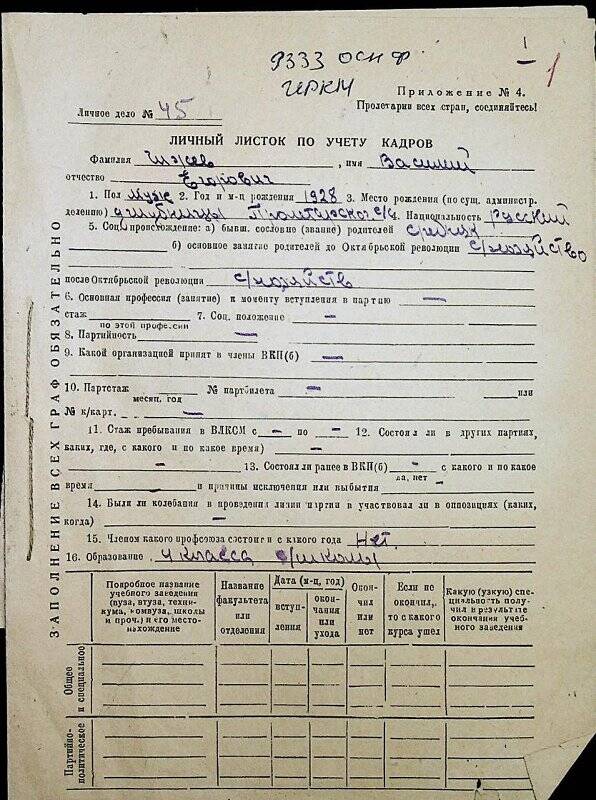 9333 осн ф
1
1
ЦРКМ
Приложение № 4.
Пролетарии всех стран, соединяйтесь!
Личное дело № 45
ЛИЧНЫЙ ЛИСТОК ПО УЧЕТУ КАДРОВ
Фамилия , имя Василий
отчество Егорович
1. Пол Муж 2. Год и м-ц рождения 1928 3. Место рождения (по сущ. администр.
делению) с/с 4. Национальность русский
5. Соц. происхождение: а) бывш. сословие (звание) родителей
б) основное занятие родителей до Октябрьской революции с/хозяйство
после Октябрьской революции с/хозяйств
6. Основная профессия (занятие) к моменту вступления в партию —
стаж 7. Соц. положение —
по этой профессии
8. Партийность —
9. Какой организацией принят в члены ВКП(б) —
10. Партстаж № партбилета — или
месяц, год
№ к/карт. —
11. Стаж пребывания в ВЛКСМ с — по — 12. Состоял ли в других партиях,
каких, где, с какого и по какое время) —
— 13. Состоял ли ранее в ВКП(б) — с какого и по какое
да, нет
время — и причины исключения или выбытия —
14. Были ли колебания в проведении линии партии и участвовал ли в оппозициях (каких,
когда) —
15. Членом какого профсоюза состоит и с какого года Нет.
16. Образование 4 класса с/школы
ЗАПОЛНЕНИЕ ВСЕХ ГРАФ ОБЯЗАТЕЛЬНО
Подробное название учебного заведения (вуза, втуза, техникума, комвуза, школы и проч.) и его местонахождение
Название факультета или отделения
Дата (м-ц, год)
вступления
окончания или ухода
Окончил или нет
Если не окончил, то с какого курса ушел
Какую (узкую) специальность получил в результате окончания учебного заведения
Общее и специальное
Партийно-политическое